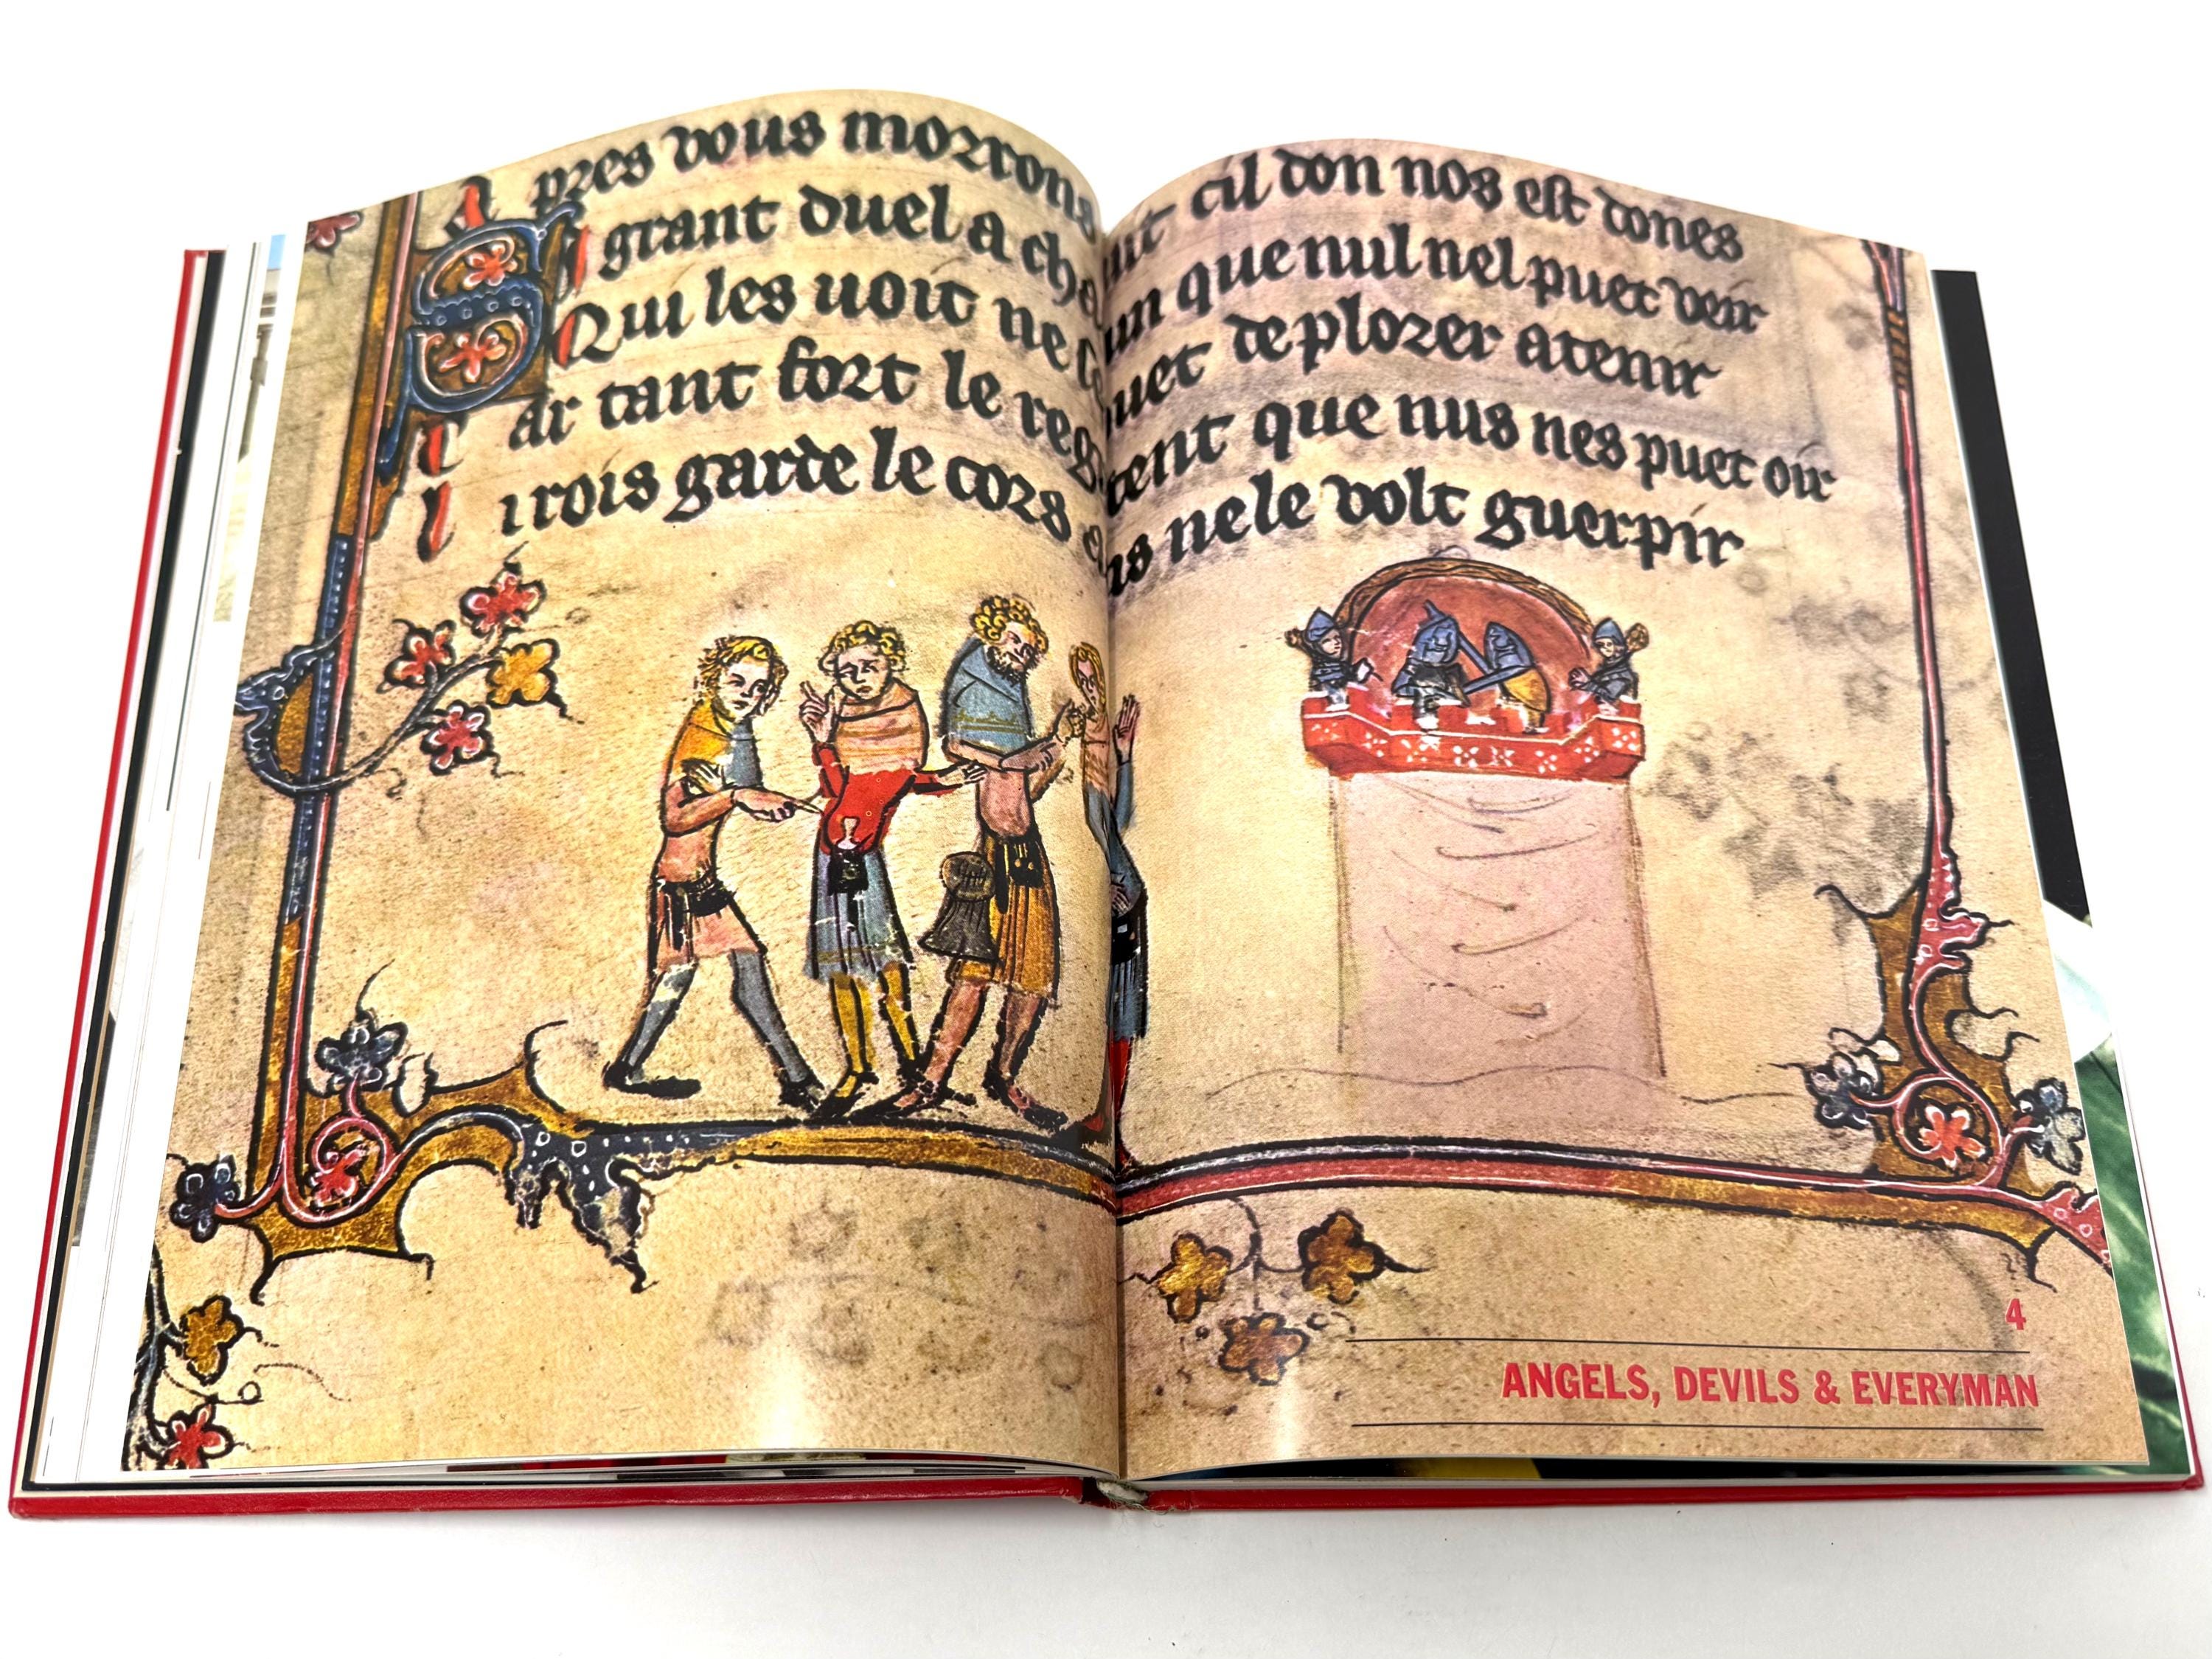 pres vous morrons
grant duel a
Qui les uoit ne
ar tant fort le
i rois garde le cors
cil don nos est dones
que nul nel puet veir
de plorer atenir
que nus nes puet oir
ne le volt guerpir
4
ANGELS, DEVILS & EVERYMAN